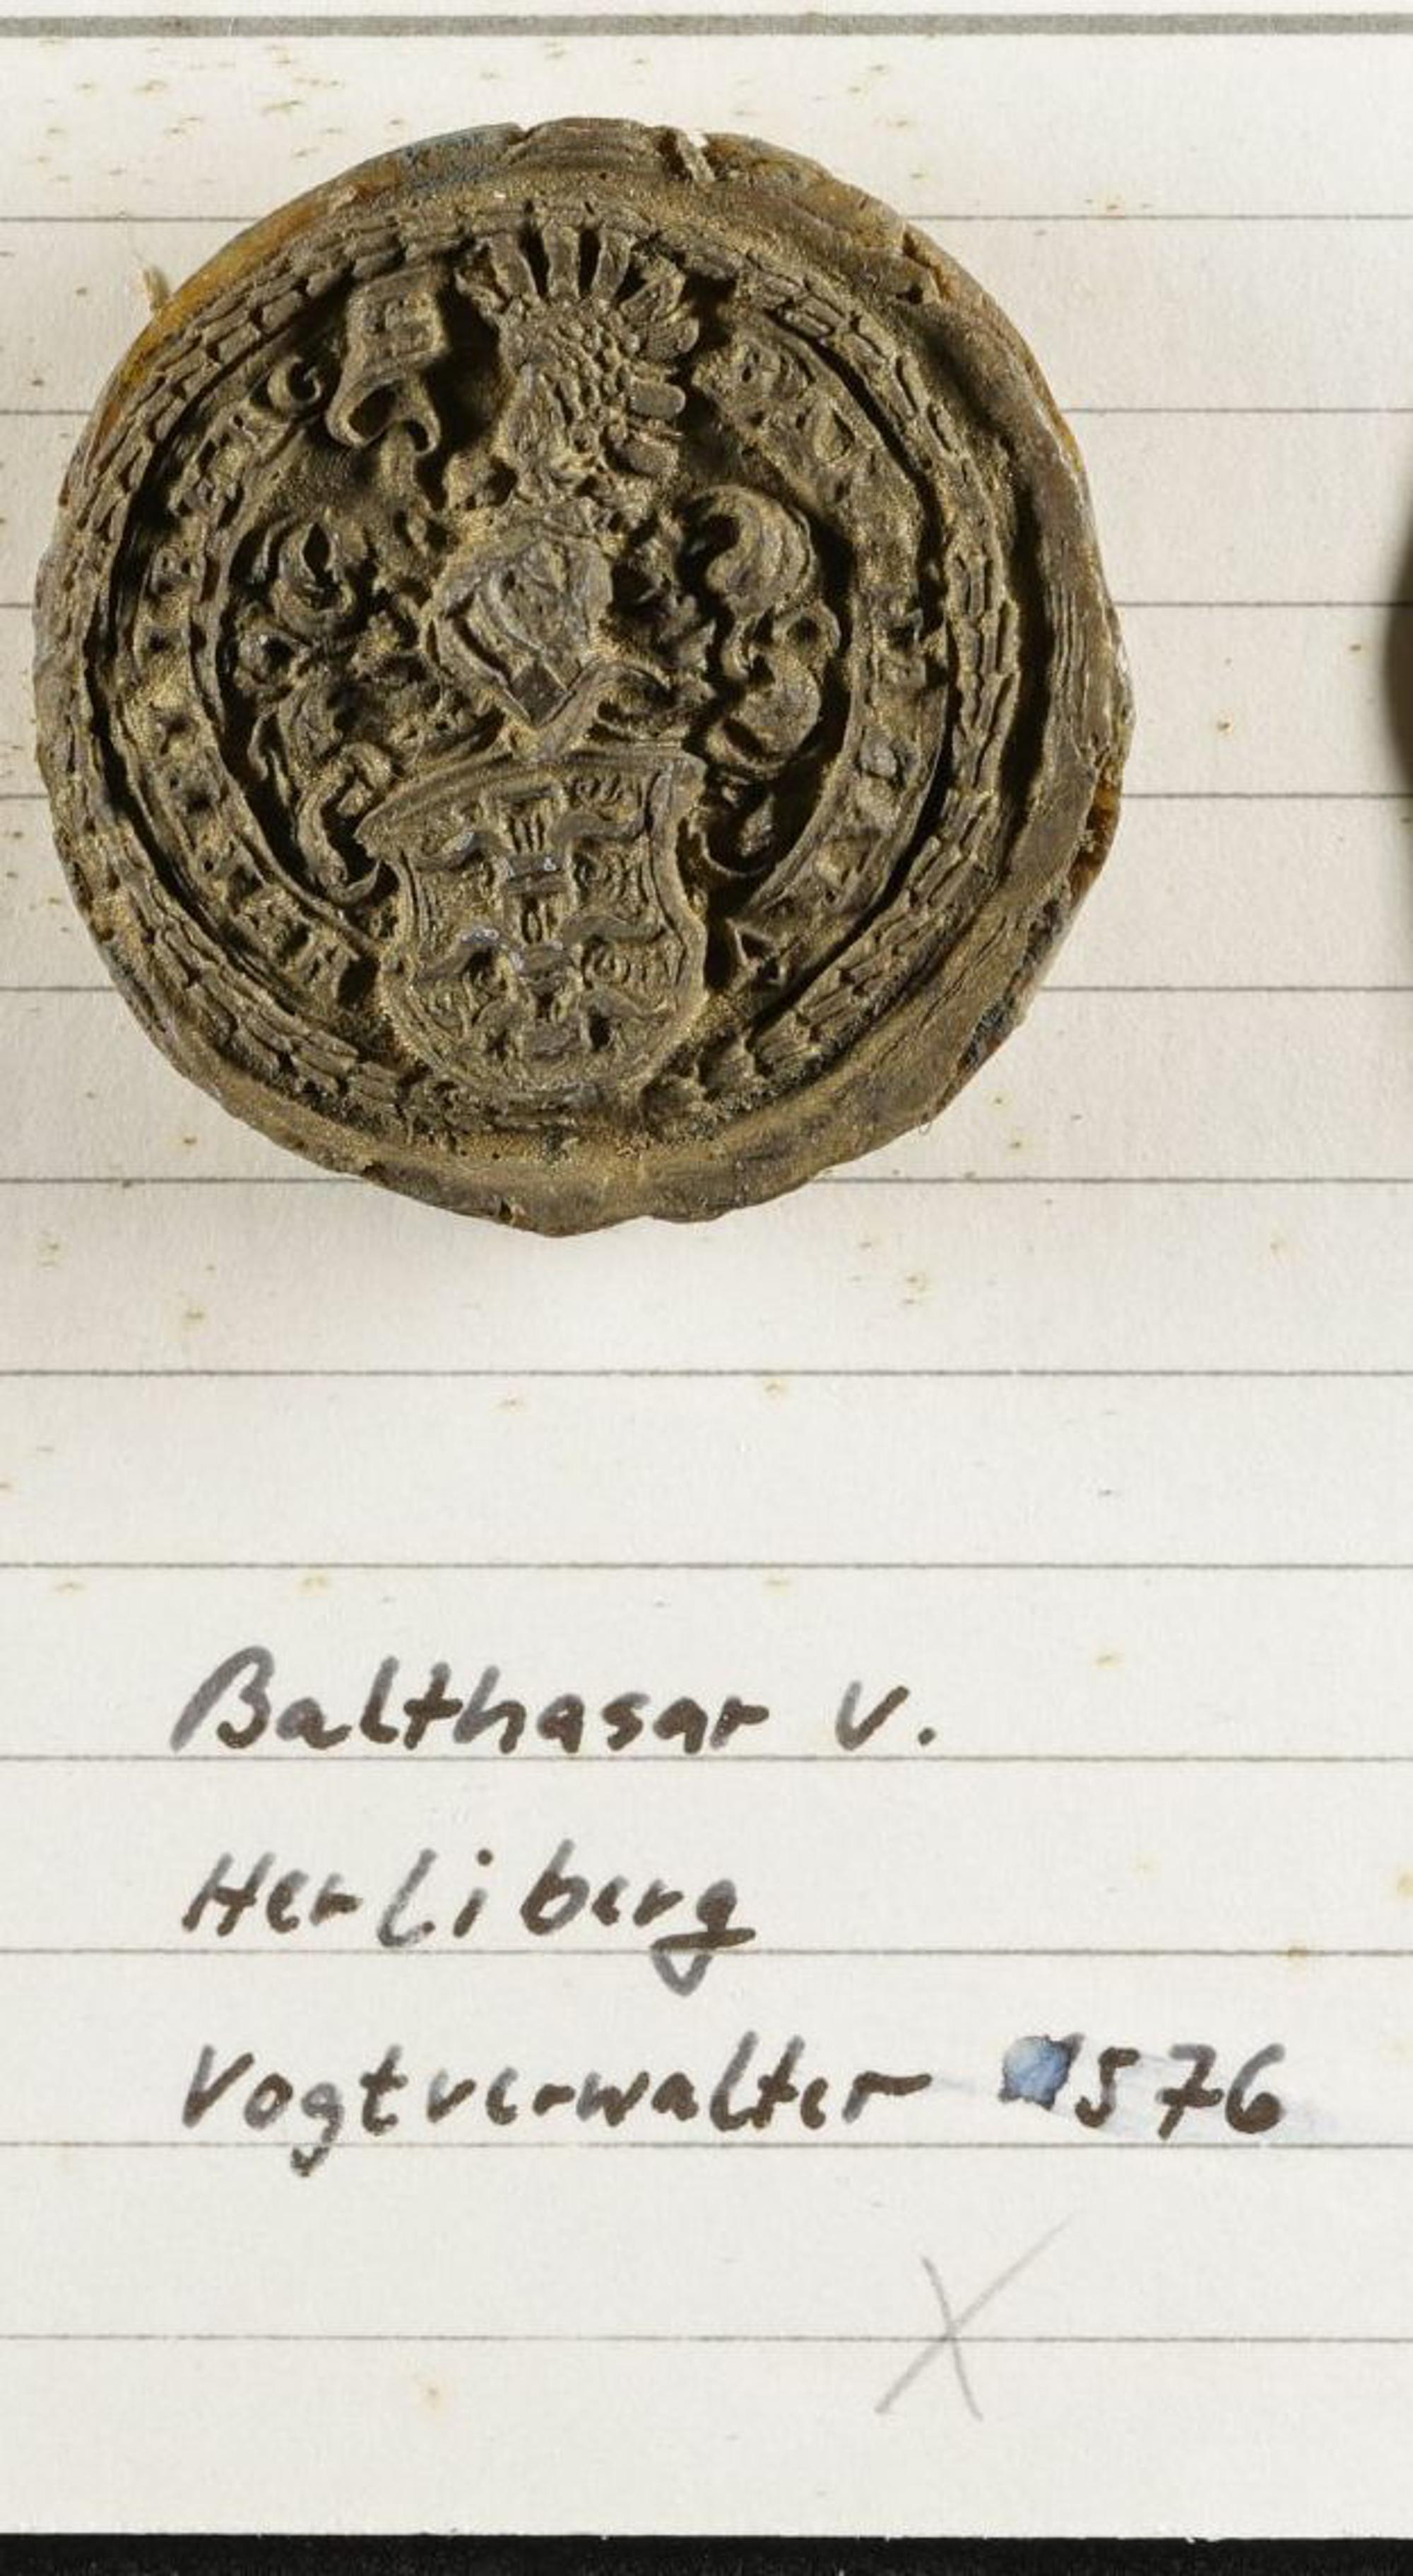 Balthasar v.
Herliberg
Vogtverwalter 1576
X